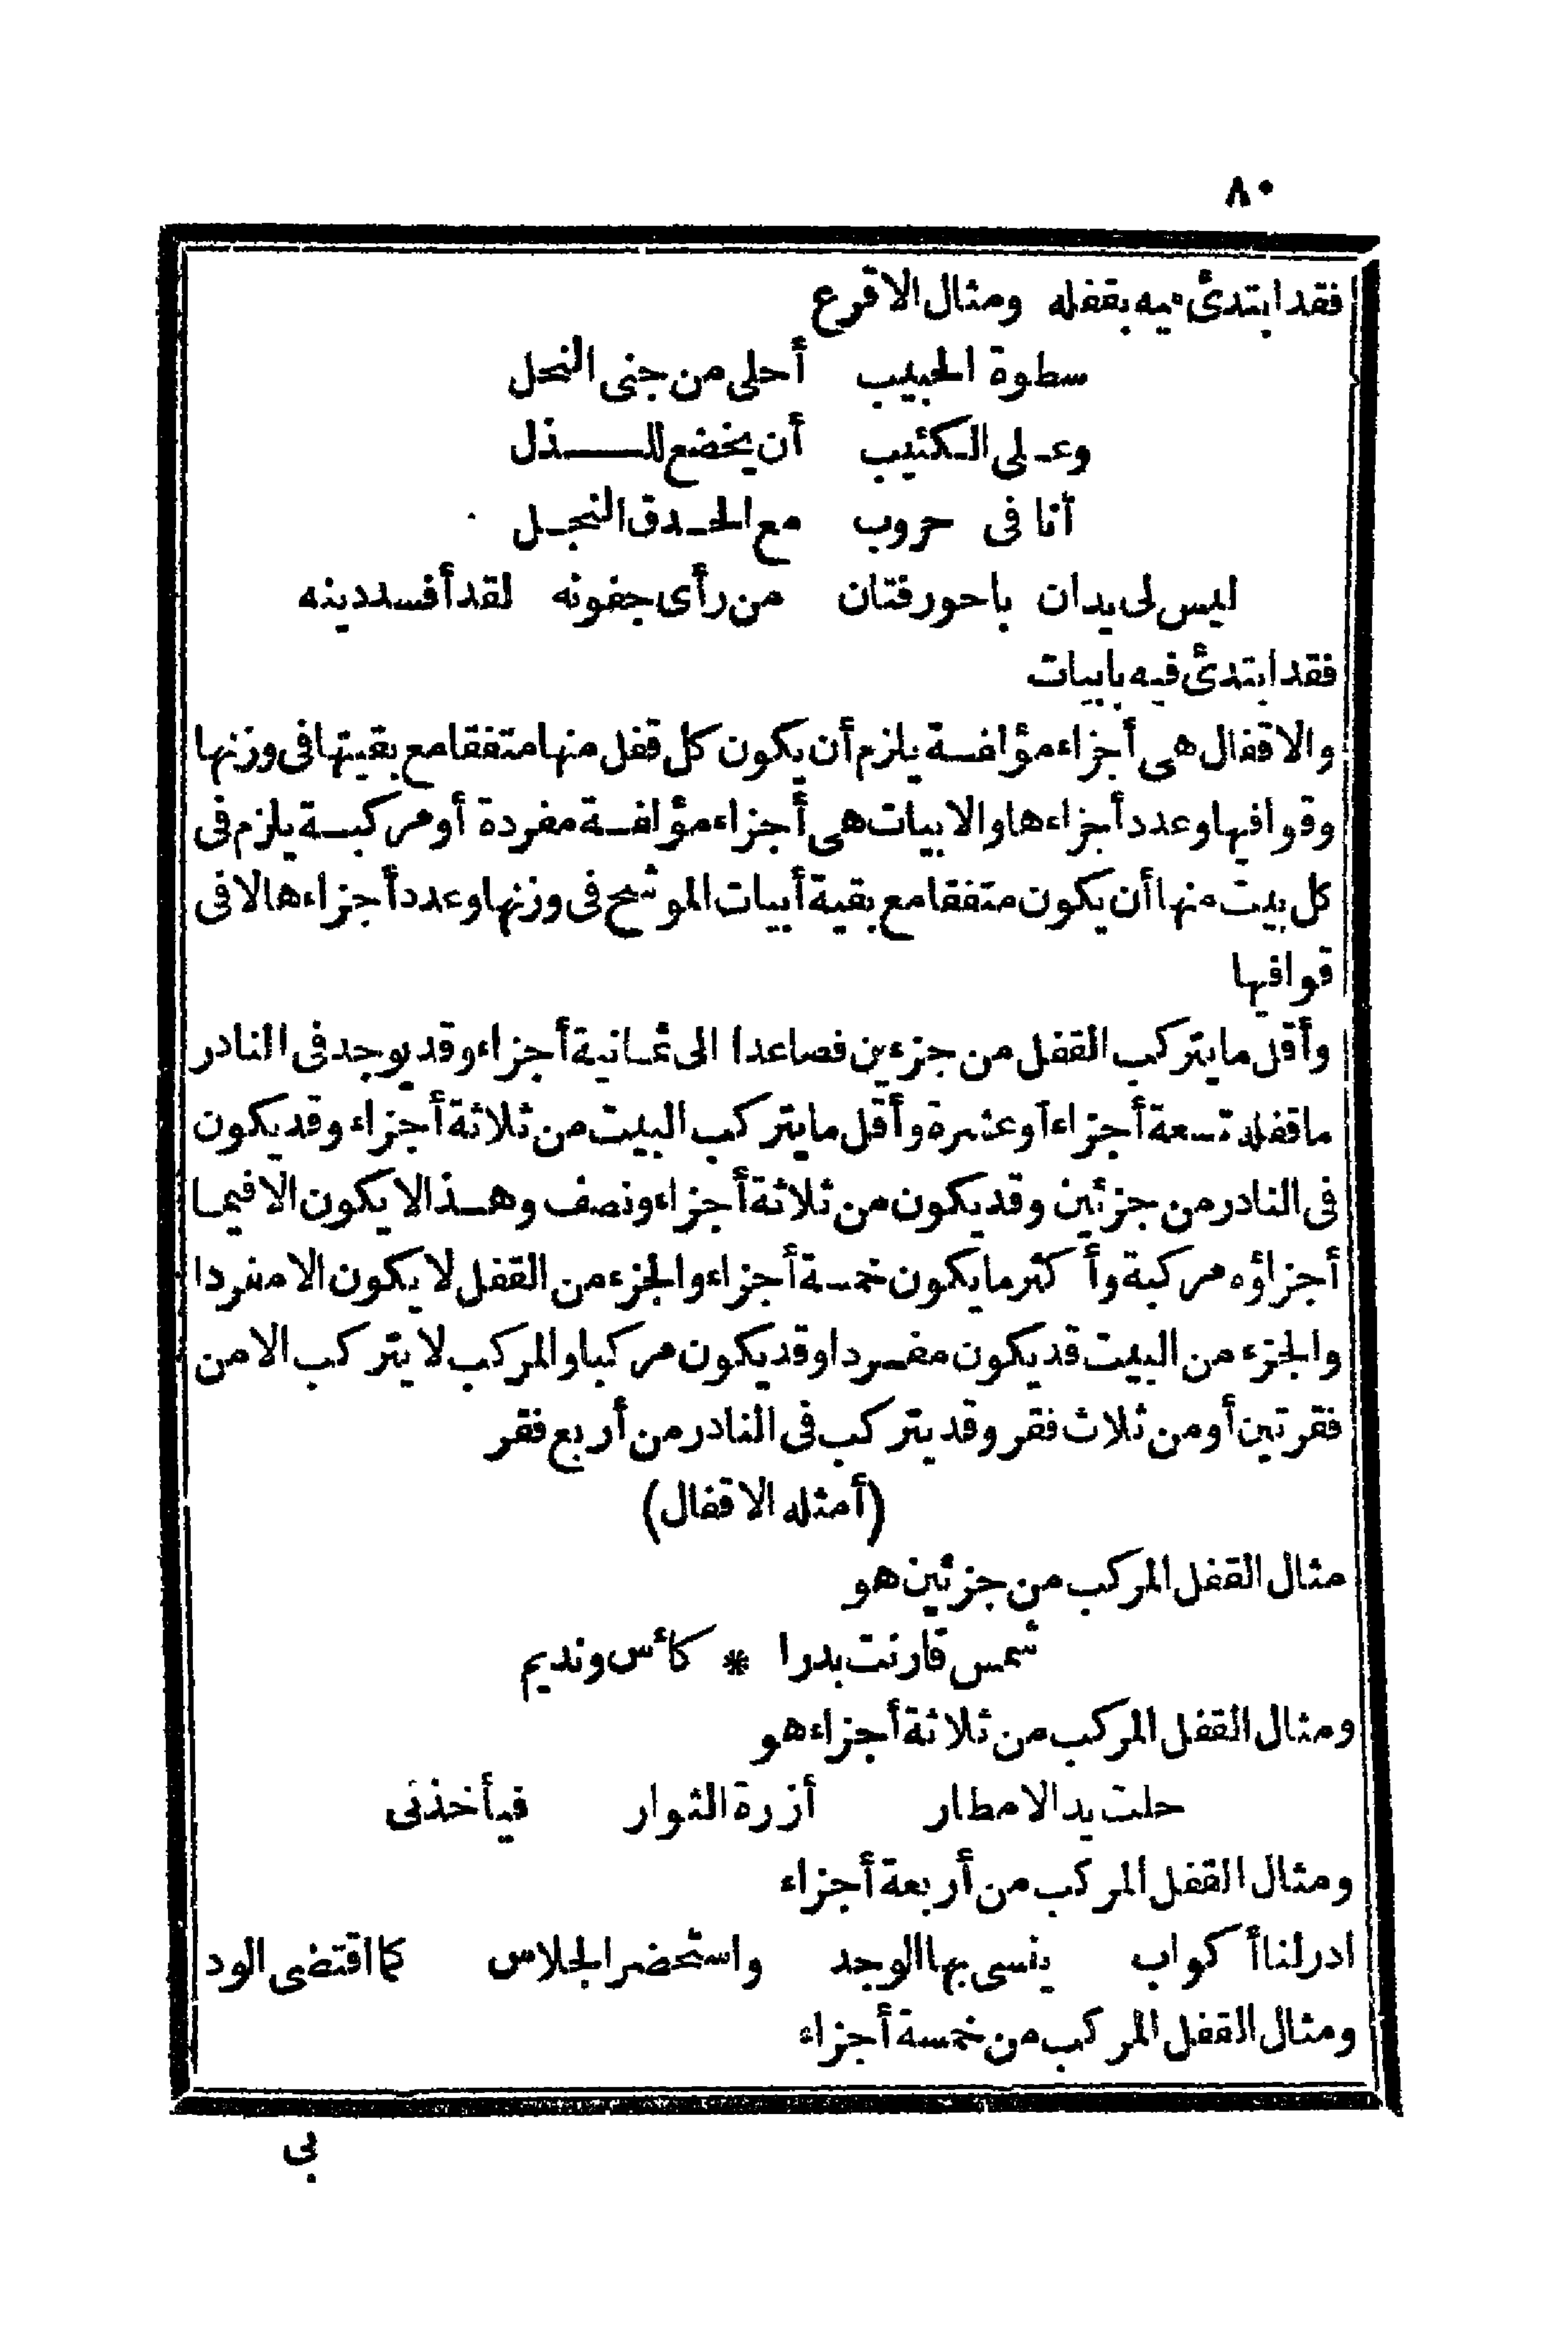 ٨٠
فقد ابتدئ فيه بقفله ومثال الاقرع
سطوة الحبيب أحلى من جنى النحل
وعلى الكئيب أن يخضع للذل
أنا فى حروب مع الحدق النجل
ليس لى يدان باحور فتان من رأى جفونه لقد أفسد دينه
فقد ابتدئ فيه بابيات
والاقفال هى أجزاء مؤلفة يلزم أن يكون كل قفل منها متفقا مع بقيتها فى وزنها
وقوافيها وعدد أجزاءها والابيات هى أجزاء مؤلفة مفردة أو مركبة يلزم فى
كل بيت منها أن يكون متفقا مع بقية أبيات الموشح فى وزنها وعدد أجزاءها لا فى
قوافيها
وأقل ما يتركب القفل من جزءين فصاعدا الى ثمانية أجزاء وقد يوجد فى النادر
ما قفله تسعة أجزاء أو عشرة وأقل ما يتركب البيت من ثلاثة أجزاء وقد يكون
فى النادر من جزئين وقد يكون من ثلاثة أجزاء ونصف وهذا لا يكون الا فيما
أجزاؤه مركبة وأكثر ما يكون خمسة أجزاء والجزء من القفل لا يكون الا مفردا
والجزء من البيت قد يكون مفردا وقد يكون مركبا والمركب لا يتركب الا من
فقرتين أو من ثلاث فقر وقد يتركب فى النادر من أربع فقر
(أمثله الاقفال)
مثال القفل المركب من جزئين هو
شمس قارنت بدرا * كأس ونديم
ومثال القفل المركب من ثلاثة أجزاء هو
حلت يد الامطار أزرة النوار فيأخذنى
ومثال القفل المركب من أربعة أجزاء
ادر لنا أكواب ينسى بها الوجد واستحضر الجلاس كما اقتضى الود
ومثال القفل المركب من خمسة أجزاء
بى